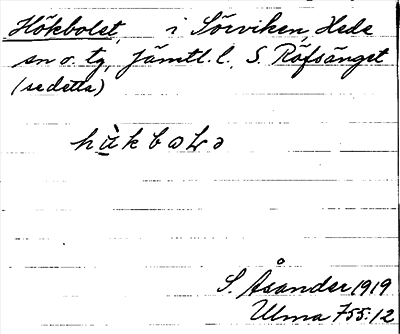 Hökbolet, i Sörviken, Hede
sn o. tg, Jämtl. l., S. Räfsänget
(se detta)
hùkbωLə
S. Åsander 1919
Ulma 755:12